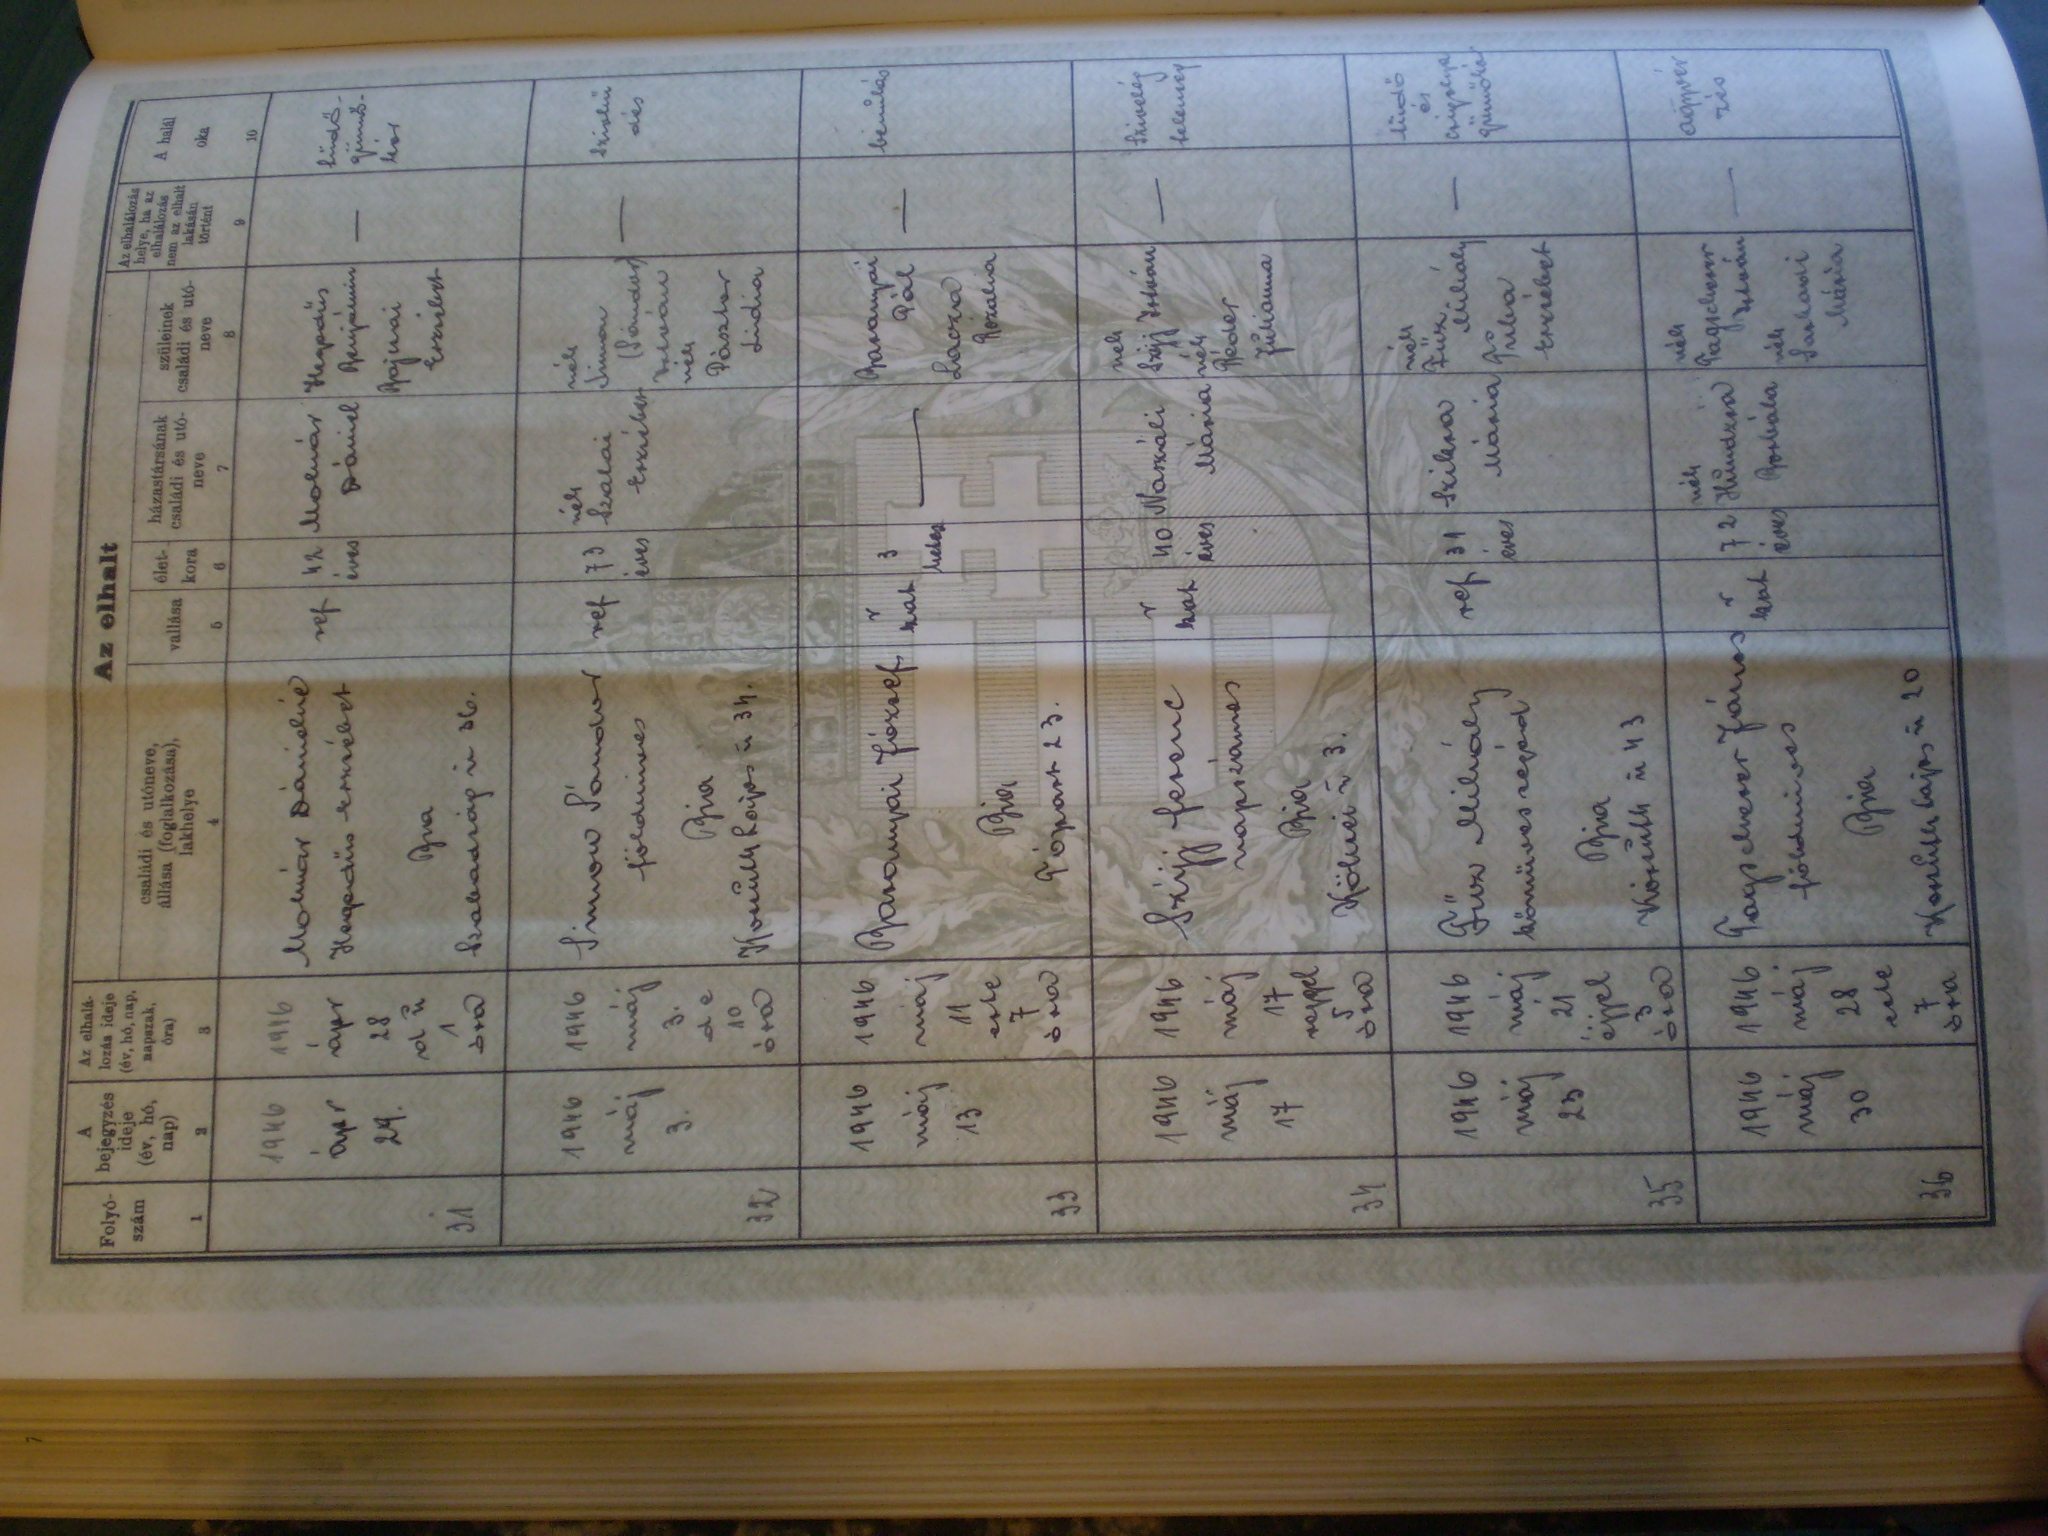 Az elhalt
Folyó-
szám
A
bejegyzés
ideje
(év, hó,
nap)
Az elhalá-
lozás ideje
(év, hó, nap,
napszak,
óra)
családi és utóneve,
állása (foglalkozása),
lakhelye
vallása
élet-
kora
házastársának
családi és utó-
neve
szüleinek
családi és utó-
neve
Az elhalálozás
helye, ha az
elhalálozás
nem az elhalt
lakásán
történt
A halál
oka
1
2
3
4
5
6
7
8
9
10
31
1946
ápr
29.
1946
ápr
28
du
1
óra
Molnár Dánielné
Hegedüs Erzsébet
Bia
Szabadság u 26.
ref
42
éves
Molnár
Dániel
Hegedüs
Benjámin
Bajnai
Erzsébet
—
tüdő-
gümő-
kór
32
1946
máj
3.
1946
máj
3.
de
10
óra
Simon Sándor
földmíves
Bia
Kossuth Lajos u 34.
ref
73
éves
néh
Szalai
Erzsébet
néh
Simon
(Sándor)
István
néh
Pásztor
Lidia
—
szívhű
dés
33
1946
máj
13
1946
máj
11
este
7
óra
Baranyai József
Bia
23.
r
kat
3
hetes
—
Baranyai
Pál
Rozália
—
bénulás
34
1946
máj
17
1946
máj
17
reggel
5
óra
Szijj Ferenc
napszámos
Bia
u 3.
r
kat
40
éves
Naszáli
Mária
néh
Szijj István
néh
Réder
Julianna
—
35
1946
máj
23
1946
máj
21
éjjel
3
óra
Mihály
kőműves segéd
Bia
Kossuth u 43
ref
31
éves
Sziksza
Mária
néh
Mihály
Erzsébet
—
tüdő
és
gümőkór
36
1946
máj
30
1946
máj
28
este
7
óra
János
földmíves
Bia
Kossuth Lajos u 20
r
kat
72
éves
néh
Borbála
néh
István
néh
Mária
—
agyvér
zés